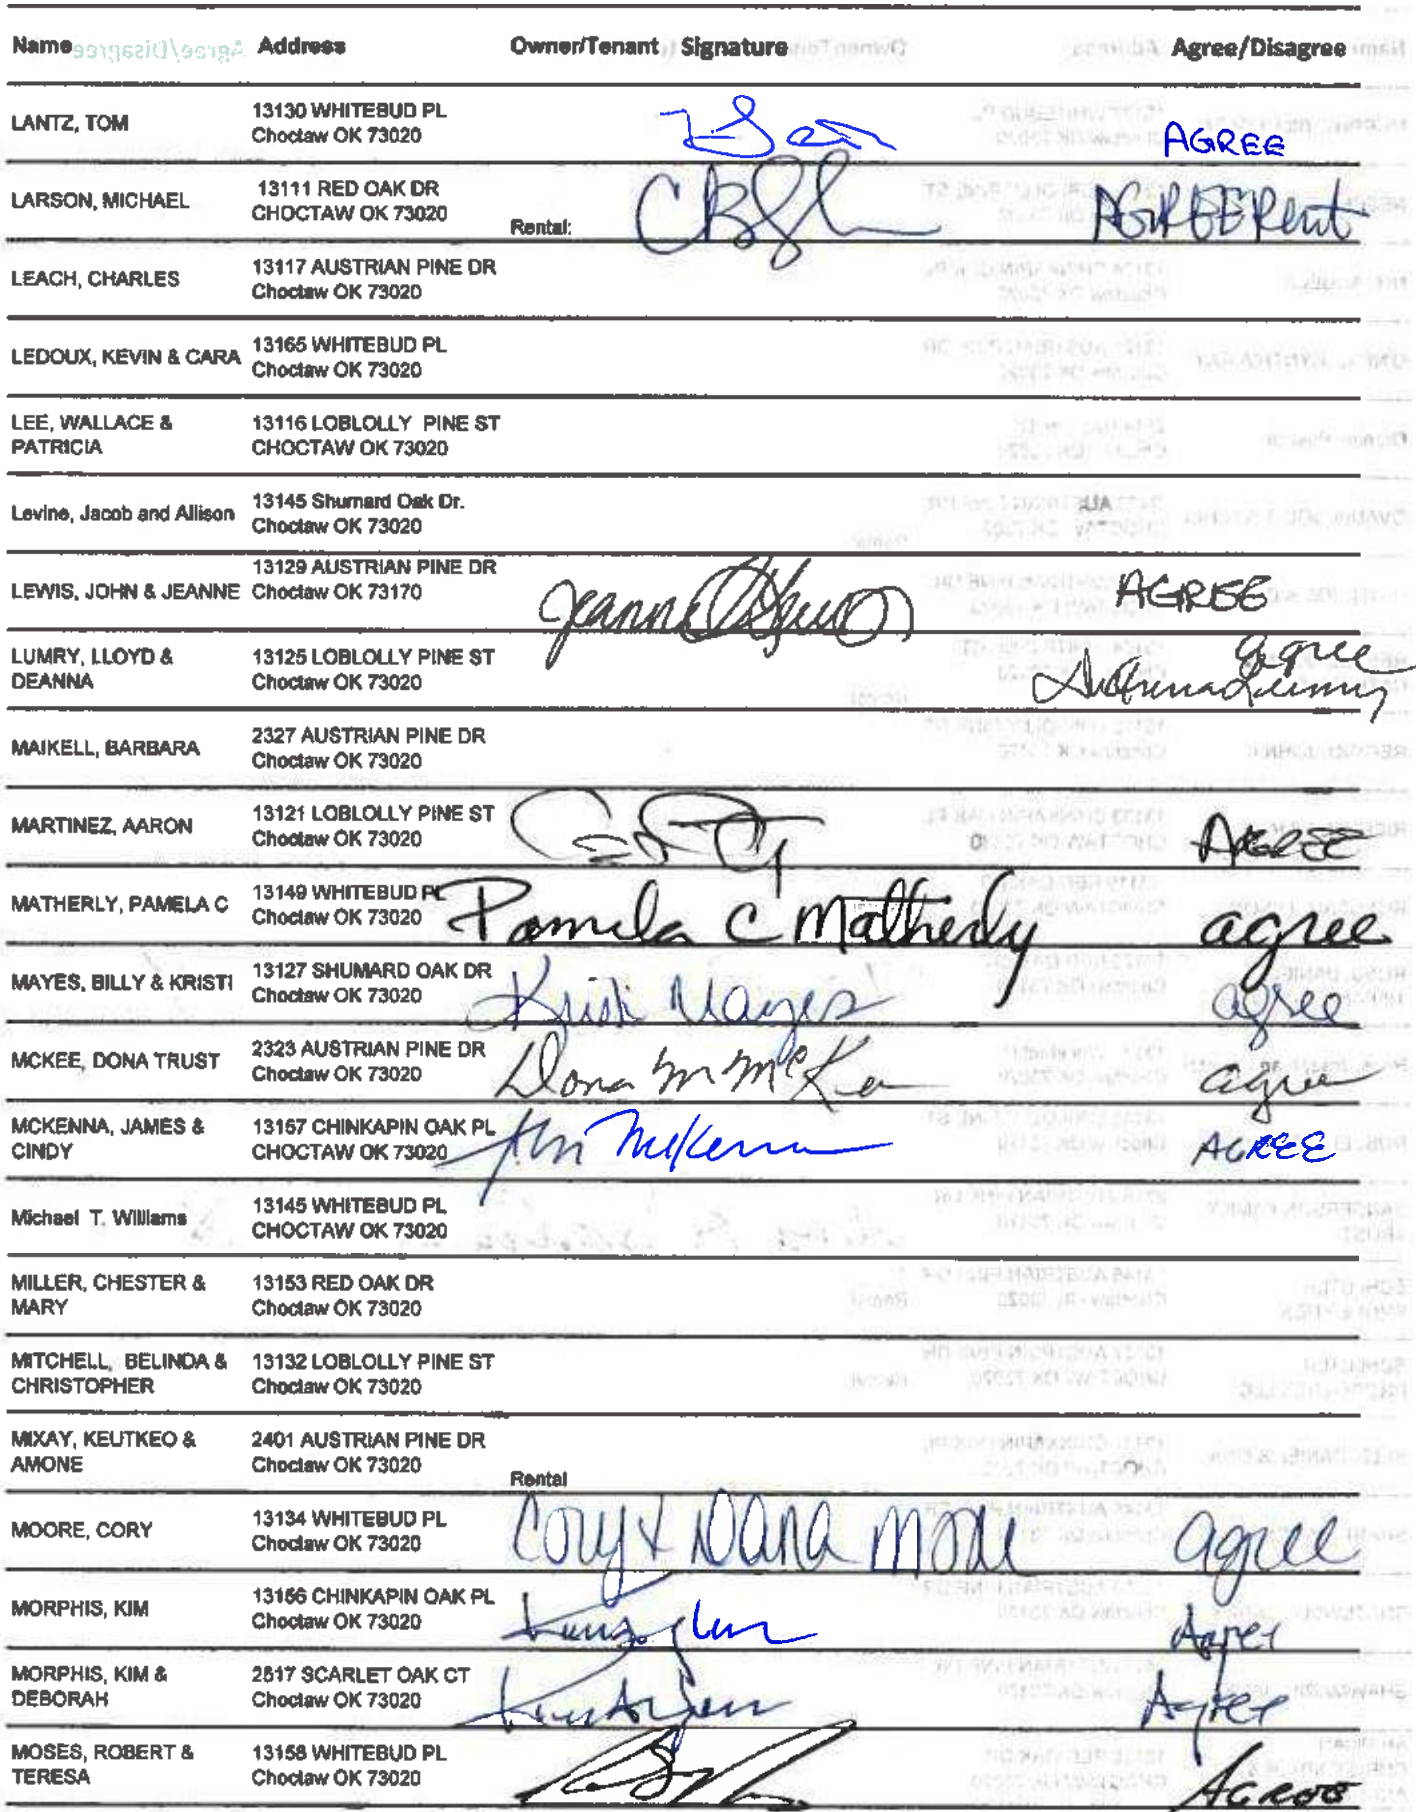 Name Address Owner/Tenant Signature Agree/Disagree
LANTZ, TOM 13130 WHITEBUD PL
Choctaw OK 73020 AGREE
LARSON, MICHAEL 13111 RED OAK DR
CHOCTAW OK 73020 Rental: AGREE Rent
LEACH, CHARLES 13117 AUSTRIAN PINE DR
Choctaw OK 73020
LEDOUX, KEVIN & CARA 13165 WHITEBUD PL
Choctaw OK 73020
LEE, WALLACE & 13116 LOBLOLLY PINE ST
PATRICIA CHOCTAW OK 73020
Levine, Jacob and Allison 13145 Shumard Oak Dr.
Choctaw OK 73020
13129 AUSTRIAN PINE DR
LEWIS, JOHN & JEANNE Choctaw OK 73170 Jeanne Lewis AGREE
LUMRY, LLOYD & 13125 LOBLOLLY PINE ST agree
DEANNA Choctaw OK 73020 DeAnna Lumry
MAIKELL, BARBARA 2327 AUSTRIAN PINE DR
Choctaw OK 73020
MARTINEZ, AARON 13121 LOBLOLLY PINE ST
Choctaw OK 73020 AGREE
MATHERLY, PAMELA C 13149 WHITEBUD PL
Choctaw OK 73020 Pamela C Matherly agree
MAYES, BILLY & KRISTI 13127 SHUMARD OAK DR
Choctaw OK 73020 Kristi Mayes agree
MCKEE, DONA TRUST 2323 AUSTRIAN PINE DR
Choctaw OK 73020 Dona M McKee agree
MCKENNA, JAMES & 13157 CHINKAPIN OAK PL
CINDY CHOCTAW OK 73020 Jim McKenna AGREE
Michael T. Williams 13145 WHITEBUD PL
CHOCTAW OK 73020
MILLER, CHESTER & 13153 RED OAK DR
MARY Choctaw OK 73020
MITCHELL, BELINDA & 13132 LOBLOLLY PINE ST
CHRISTOPHER Choctaw OK 73020
MIXAY, KEUTKEO & 2401 AUSTRIAN PINE DR
AMONE Choctaw OK 73020 Rental
MOORE, CORY 13134 WHITEBUD PL
Choctaw OK 73020 Cory & Dana Moore agree
MORPHIS, KIM 13156 CHINKAPIN OAK PL
Choctaw OK 73020 Agree
MORPHIS, KIM & 2517 SCARLET OAK CT
DEBORAH Choctaw OK 73020 Agree
MOSES, ROBERT & 13158 WHITEBUD PL
TERESA Choctaw OK 73020 AGREE